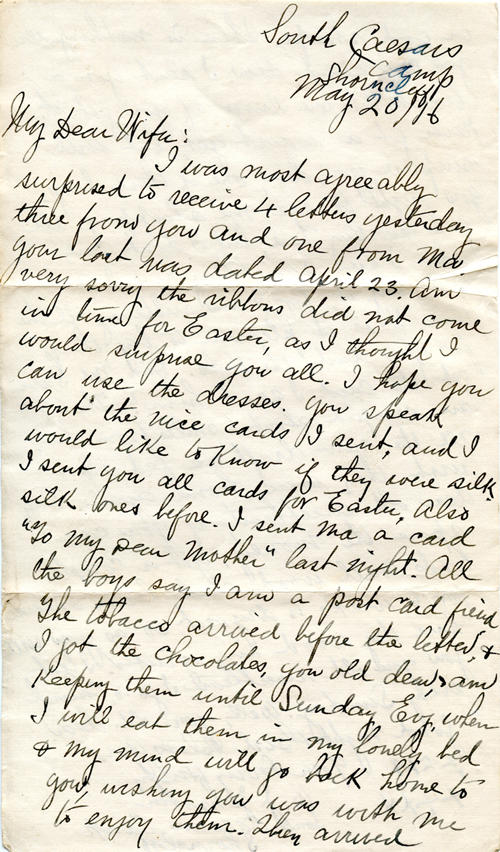 South Caesars
Camp
Shorncliff
May 20/16
My Dear Wife:
I was most agreeably
surprised to receive 4 letters yesterday
three from you and one from Ma,
your last was dated april 23. Am
very sorry the ribbons did not come
in time for Easter, as I thought I
would surprise you all. I hope you
can use the dresses. you speak
about the nice cards I sent, and I
would like to know if they were silk.
I sent you all cards for Easter, Also
silk ones before. I sent Ma a card
"To my Dear Mother" last night. All
the boys say I am a post card fiend
The tobacco arrived before the letter, &
I got the chocolates, you old dear, am
Keeping them until Sunday Evg, when
I will eat them in my lonely bed
& my mind will go back home to
you, wishing you was with me
to enjoy them. They arrived